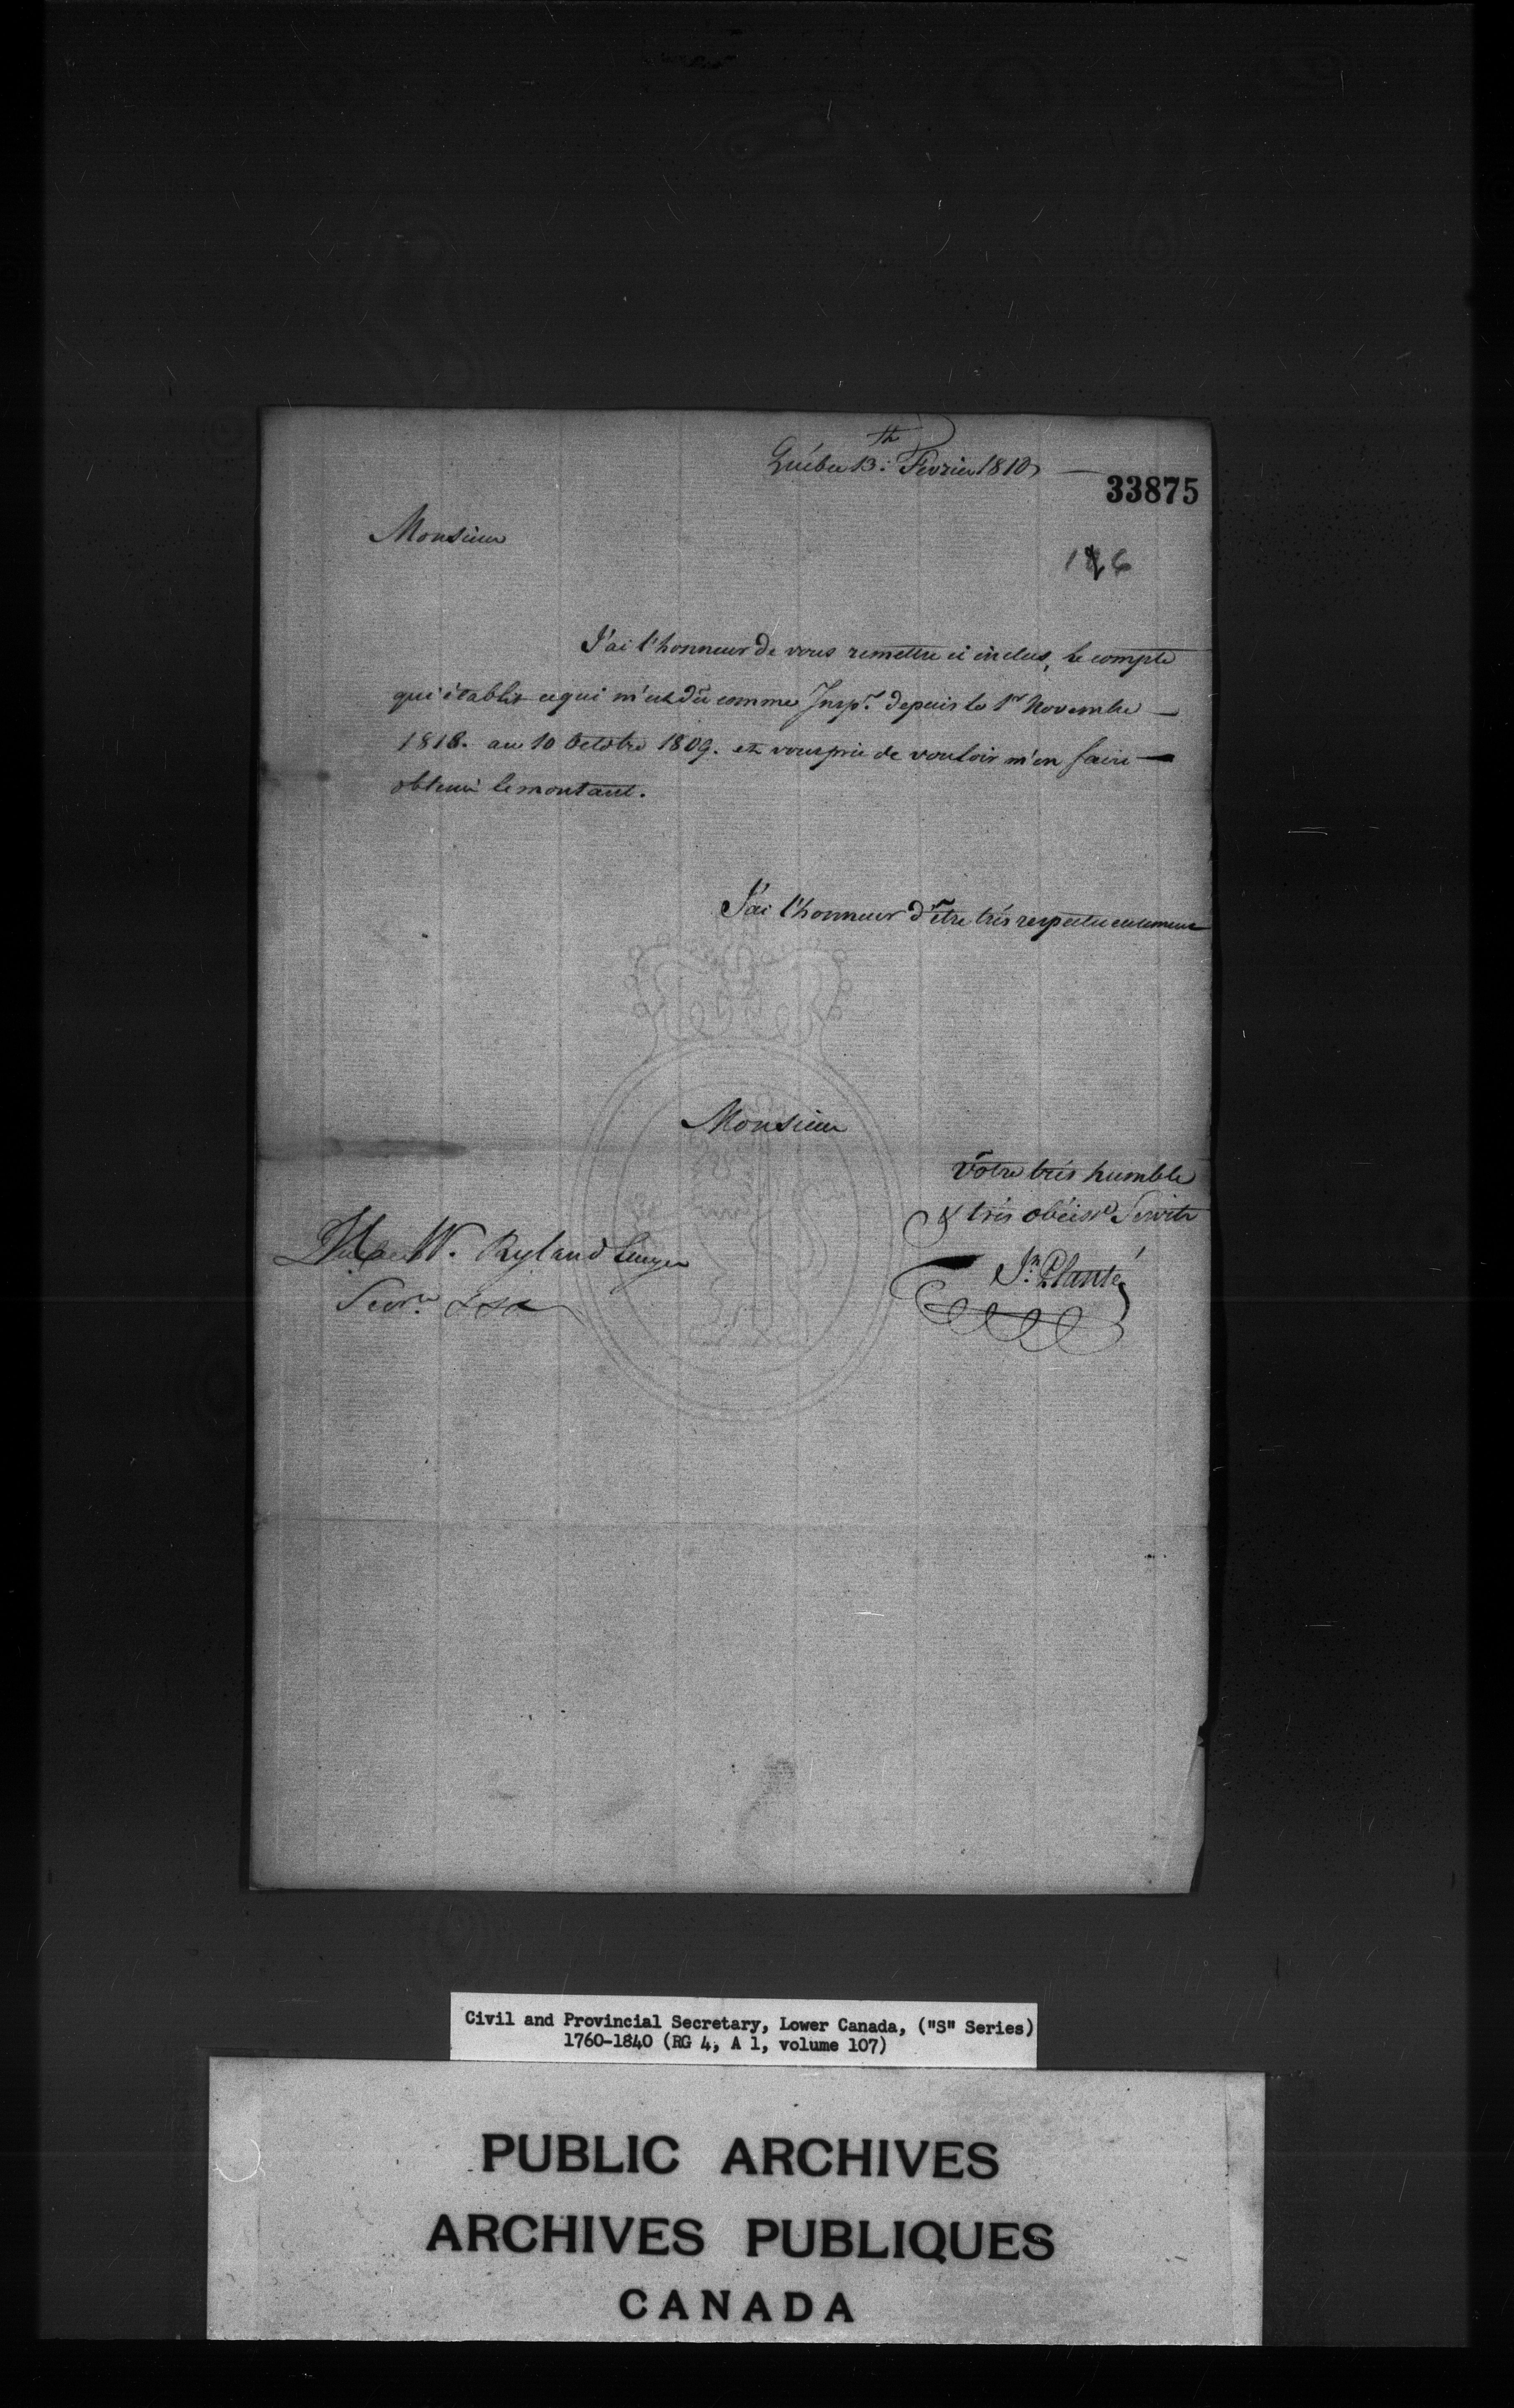 Québec 13.th Fevrier 1810
33875
Monsieur
186
J'ai l'honneur de vous remettre ci inclus, le compte
qui établit ce qui m'est dû comme Insp.r depuis le 1er Novembre
1818. au 10 Octobre 1809. et vous prie de vouloir m'en faire
obtenir le montant.
J'ai l'honneur d'être très respectueusement
Monsieur
Votre très humble
& très obéisst Servitr
W. Ryland Ecuyer
Secr.re &c &c
Jh. Planté
Civil and Provincial Secretary, Lower Canada, ("S" Series)
1760-1840 (RG 4, A 1, volume 107)
PUBLIC ARCHIVES
ARCHIVES PUBLIQUES
CANADA